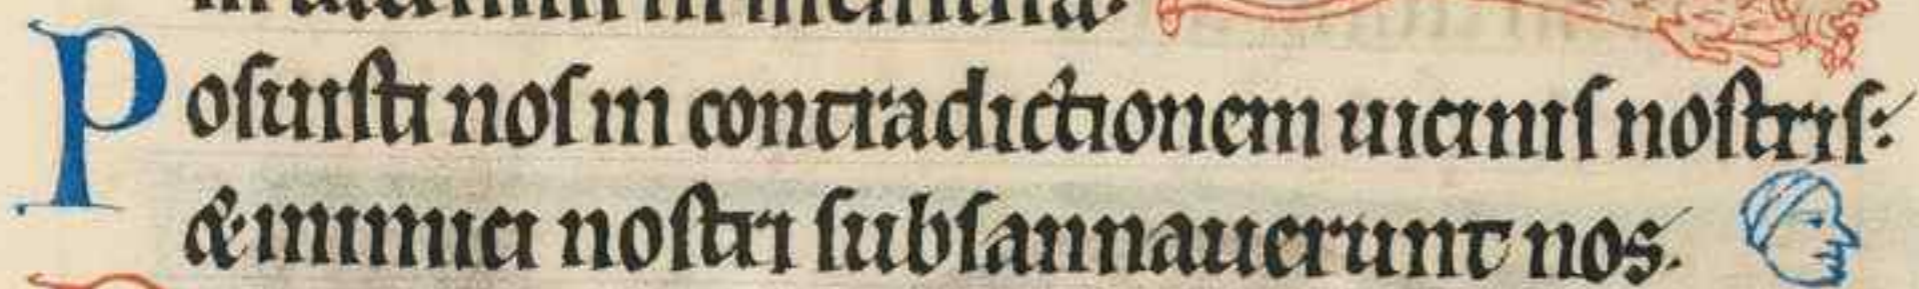 Posuisti nos in contradictionem uicinis nostris:
& inimici nostri subsannauerunt nos.